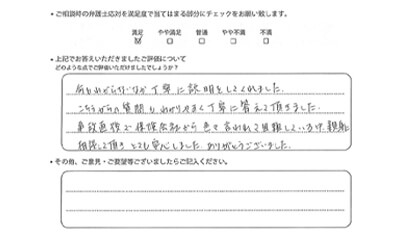 ・ご相談時の弁護士応対を満足度で当てはまる部分にチェックをお願い致します。
満足 やや満足 普通 やや不満 不満
・上記でお答えいただきましたご評価について
どのような点でご評価いただけましたでしょうか?
何もわからないなか丁寧に説明をしてくれました。
こちらからの質問もわかりやすく丁寧に答えて頂きました。
事故直後で保険会社から色々言われて困惑している中、親身に
相談して頂きとても安心しました。ありがとうございました。
・その他、ご意見・ご要望等ございましたらご記入ください。